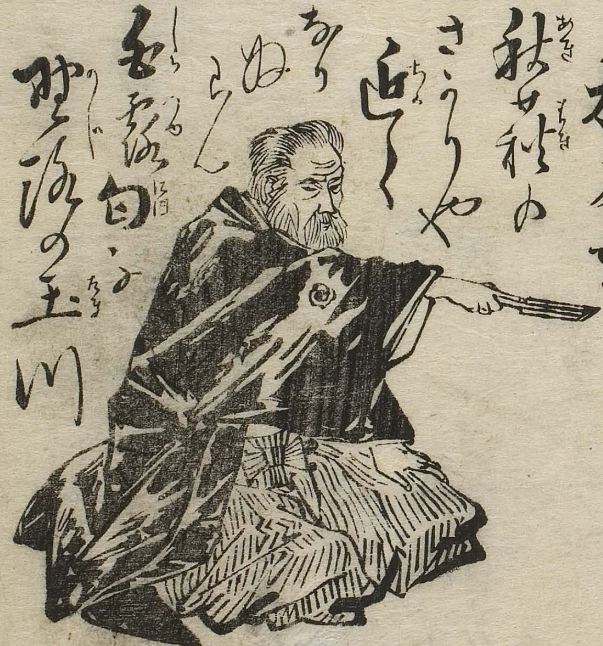 秋萩の
さかりや
近く
なり
ぬ
らん
白露匂ふ
野路の玉川